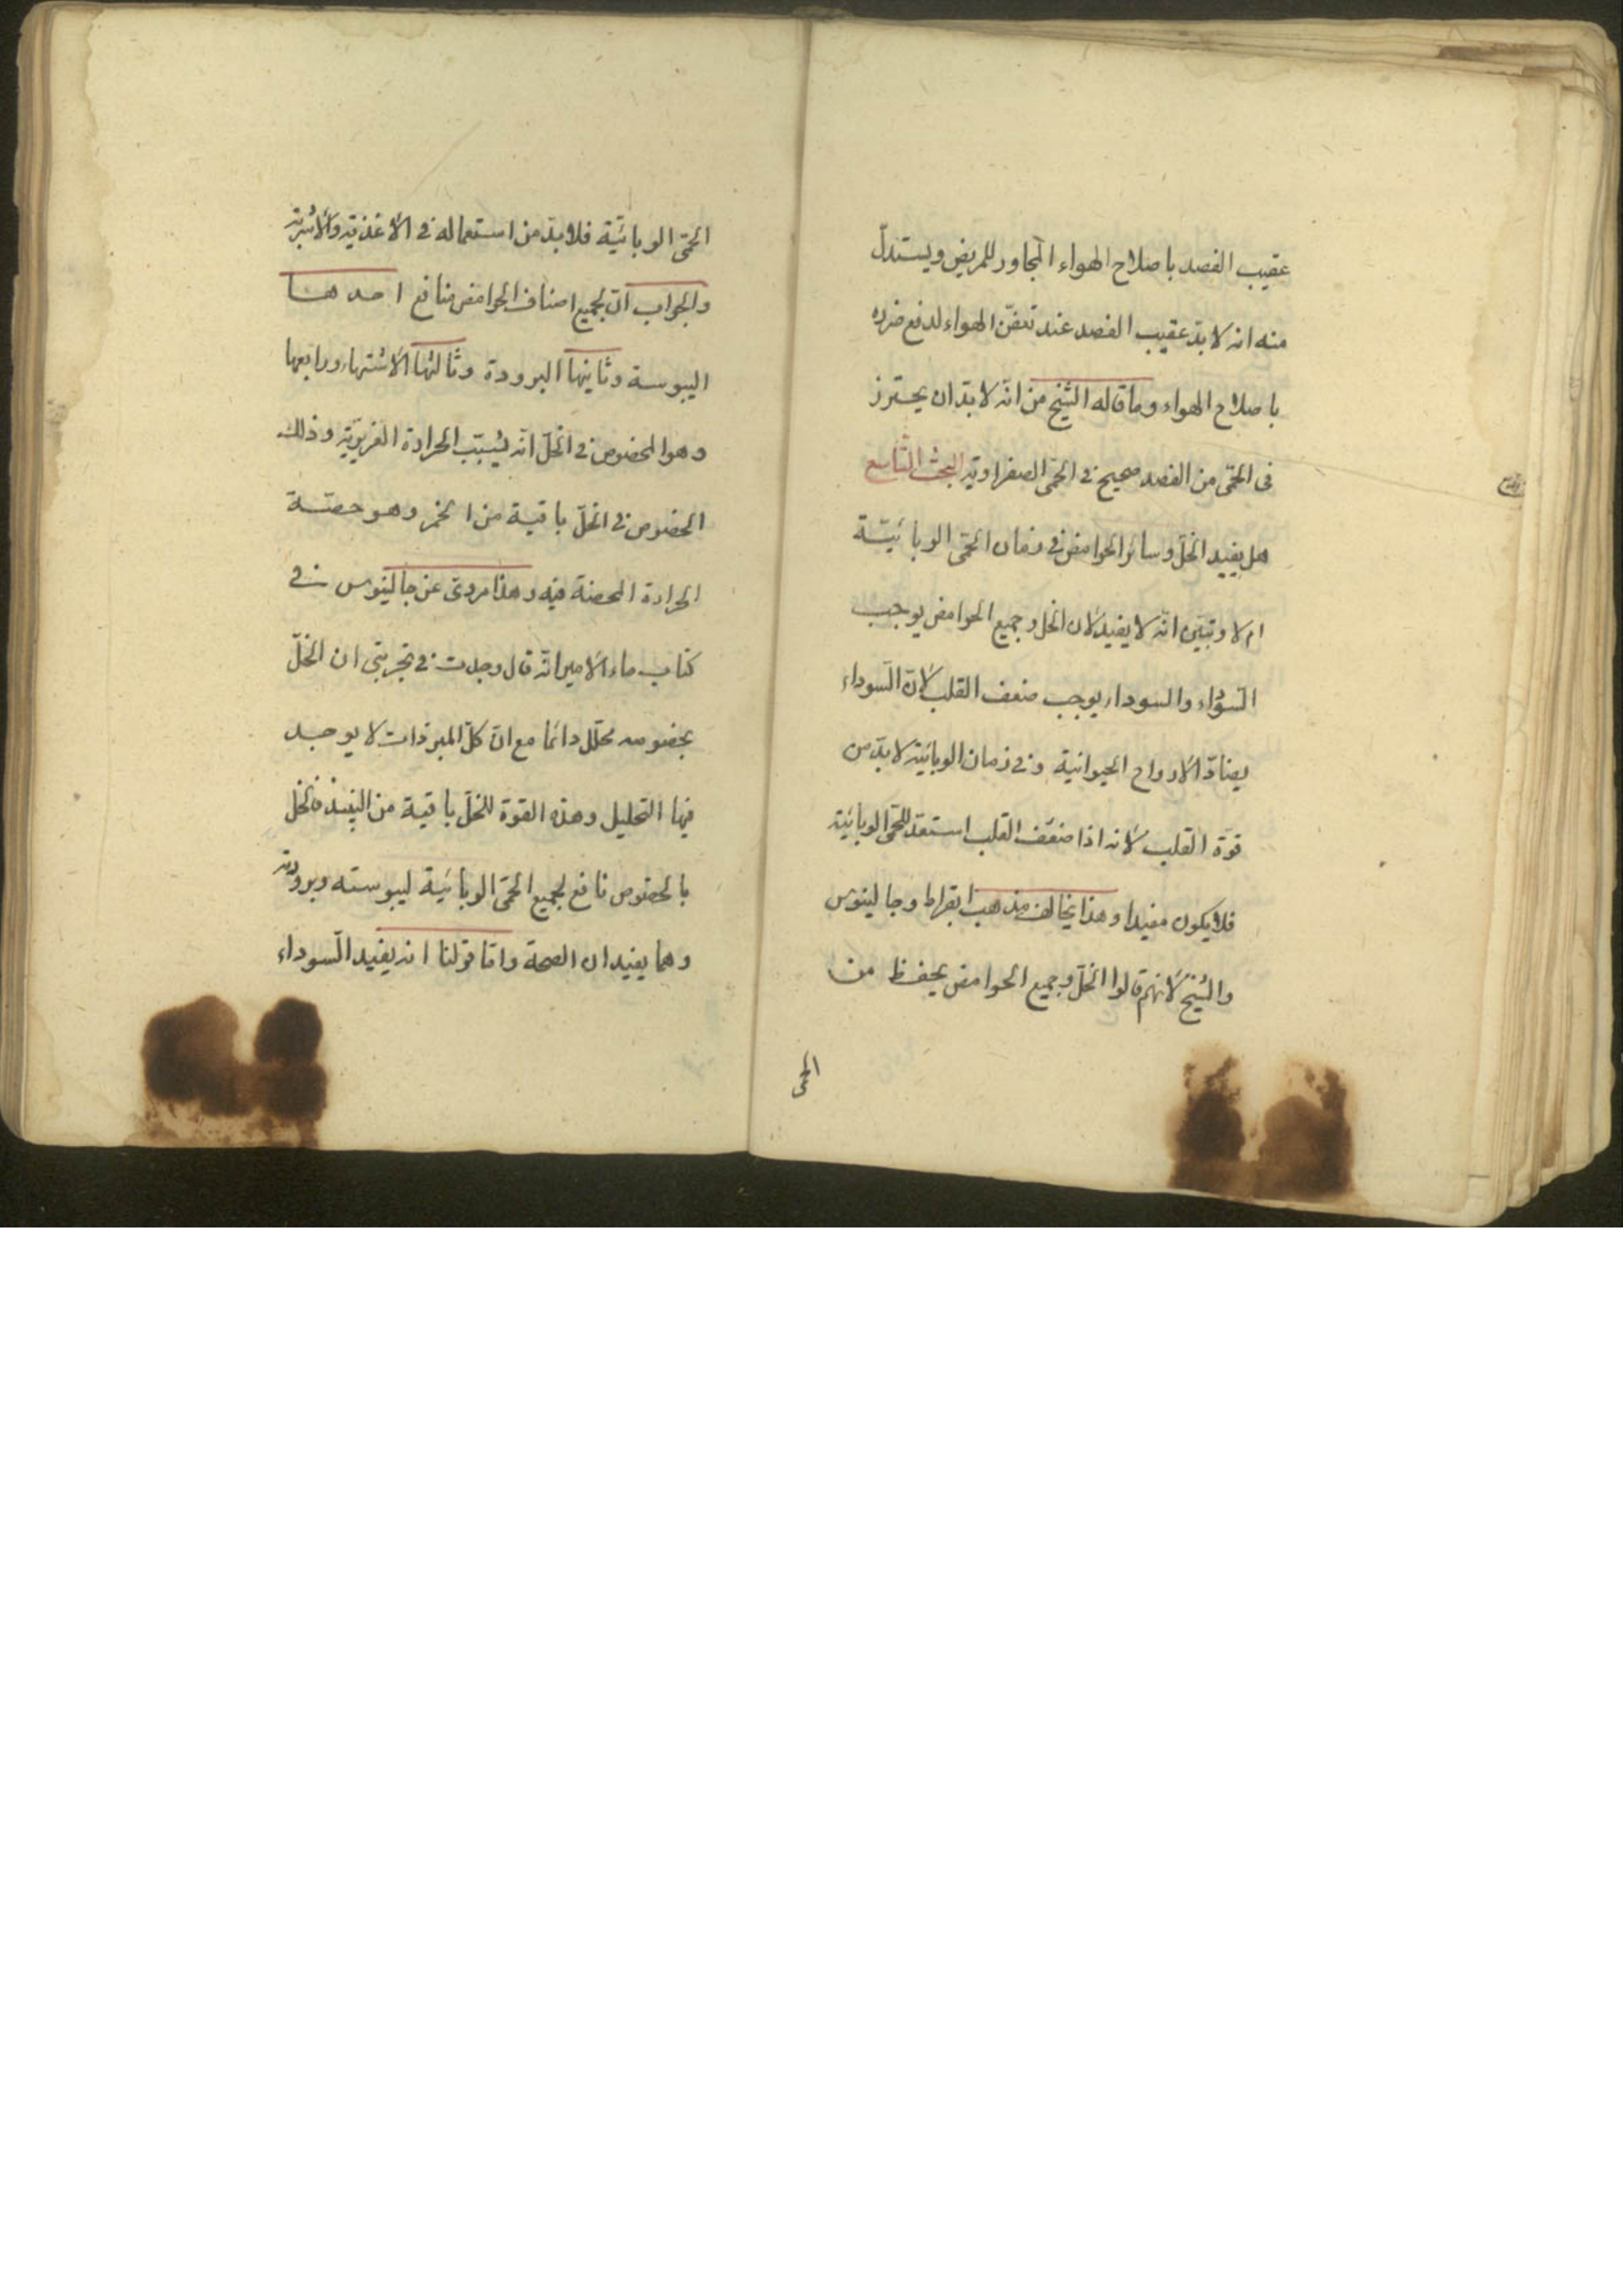 عقيب الفصد باصلاح الهواء المجاور للمريض ويستدلّ
منه انه لا بدّ عقيب الفصد عند تعفّن الهواء لدفع ضرره
باصلاح الهواء وما قاله الشيخ من انّه لا بدّ ان يحترز
فى الحمّى من الفصد صحيح فى الحمّى الصفراوية البحث التاسع
هل يفيد الخلّ وسائر الحوامض فى زمان الحمّى الوبائيّة
ام لا وتبيّن انّه لا يفيد لان الخل وجميع الحوامض يوجب
السّوداء والسوداء يوجب ضعف القلب لانّ السّوداء
يضادّ الارواح الحيوانية وفى زمان الوبائية لا بدّ من
قوّة القلب لانه اذا ضعف القلب استعدّ للحمّى الوبائية
فلا يكون مفيدا وهذا يخالف مذهب ابقراط وجالينوس
والشيخ لانهم قالوا الخلّ وجميع الحوامض يحفظ من
الحمى
الحمّى الوبائيّة فلا بدّ من استعماله فى الاغذية والاشربة
والجواب انّ لجميع اصناف الحوامض منافع احدها
اليبوسة وثانيها البرودة وثالثها الاشتهاء ورابعها
وهو المخصوص فى الخلّ انّه يسبّب الحرارة الغريزيّة وذلك
الخصوص فى الخلّ باقية من الخمر وهو حصّة
الحرارة المحضة فيه وهذا مروىّ عن جالينوس فى
كتاب ماء الامير انّه قال وجدت فى تجربتى ان الخلّ
بخصوصه محلّل دائما مع انّ كلّ المبرّدات لا يوجد
فيها التحليل وهذه القوّة للخلّ باقية من النبيذ فالخلّ
بالخصوص نافع لجميع الحمّى الوبائية ليبوسته وبرودته
وهما يفيدان الصحّة وامّا قولنا انه يفيد السّوداء